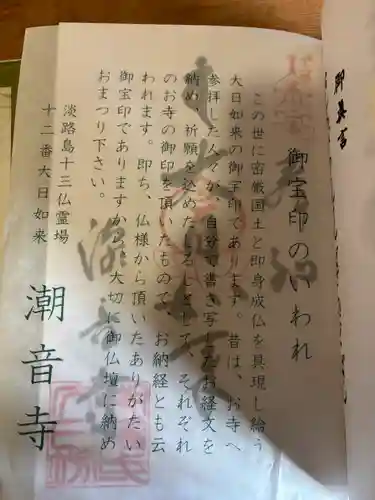 御宝印のいわれ
この世に密厳国土と即身成仏を具現し給う
大日如来の御宝印であります。昔は、お寺へ
参拝した人々が、自分で書き写したお経文を
納め、祈願を込めたしるしとして、それぞれ
のお寺の御印を頂いたもので、お納経とも云
われます。即ち、仏様から頂いたありがたい
御宝印でありますから、大切に御仏壇に納め
おまつり下さい。
淡路島十三仏霊場
十二番大日如来
潮音寺